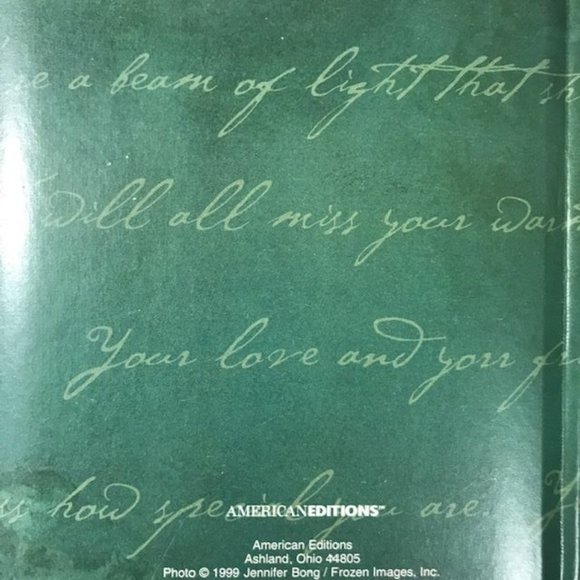 a beam of light that sh
will all miss your warm
Your love and yorr fr
ss how special you are. Y
AMERICANEDITIONS™
American Editions
Ashland, Ohio 44805
Photo © 1999 Jennifer Bong / Frozen Images, Inc.